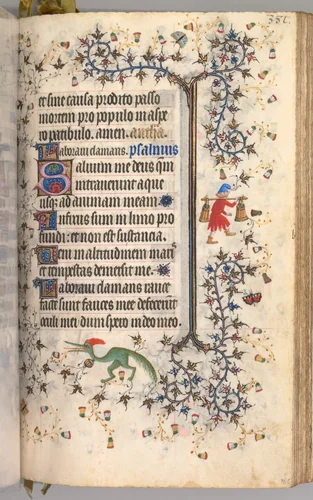 356
et sine causa prodito passo
mortem pro populo in aspe
ro patibulo. amen. antha.
Laboravi clamans. psalmus
Saluum me deus qm̄
intraverunt aque
usq; ad animam meam.
Infixus sum in limo pro
fundi: et non est substancia.
Veni in altitudinem mari᷒
et tempestas demersit me.
Laboravi clamans rauce
facte sunt fauces mee defecerūt
oculi mei: dum spero in deo meo.